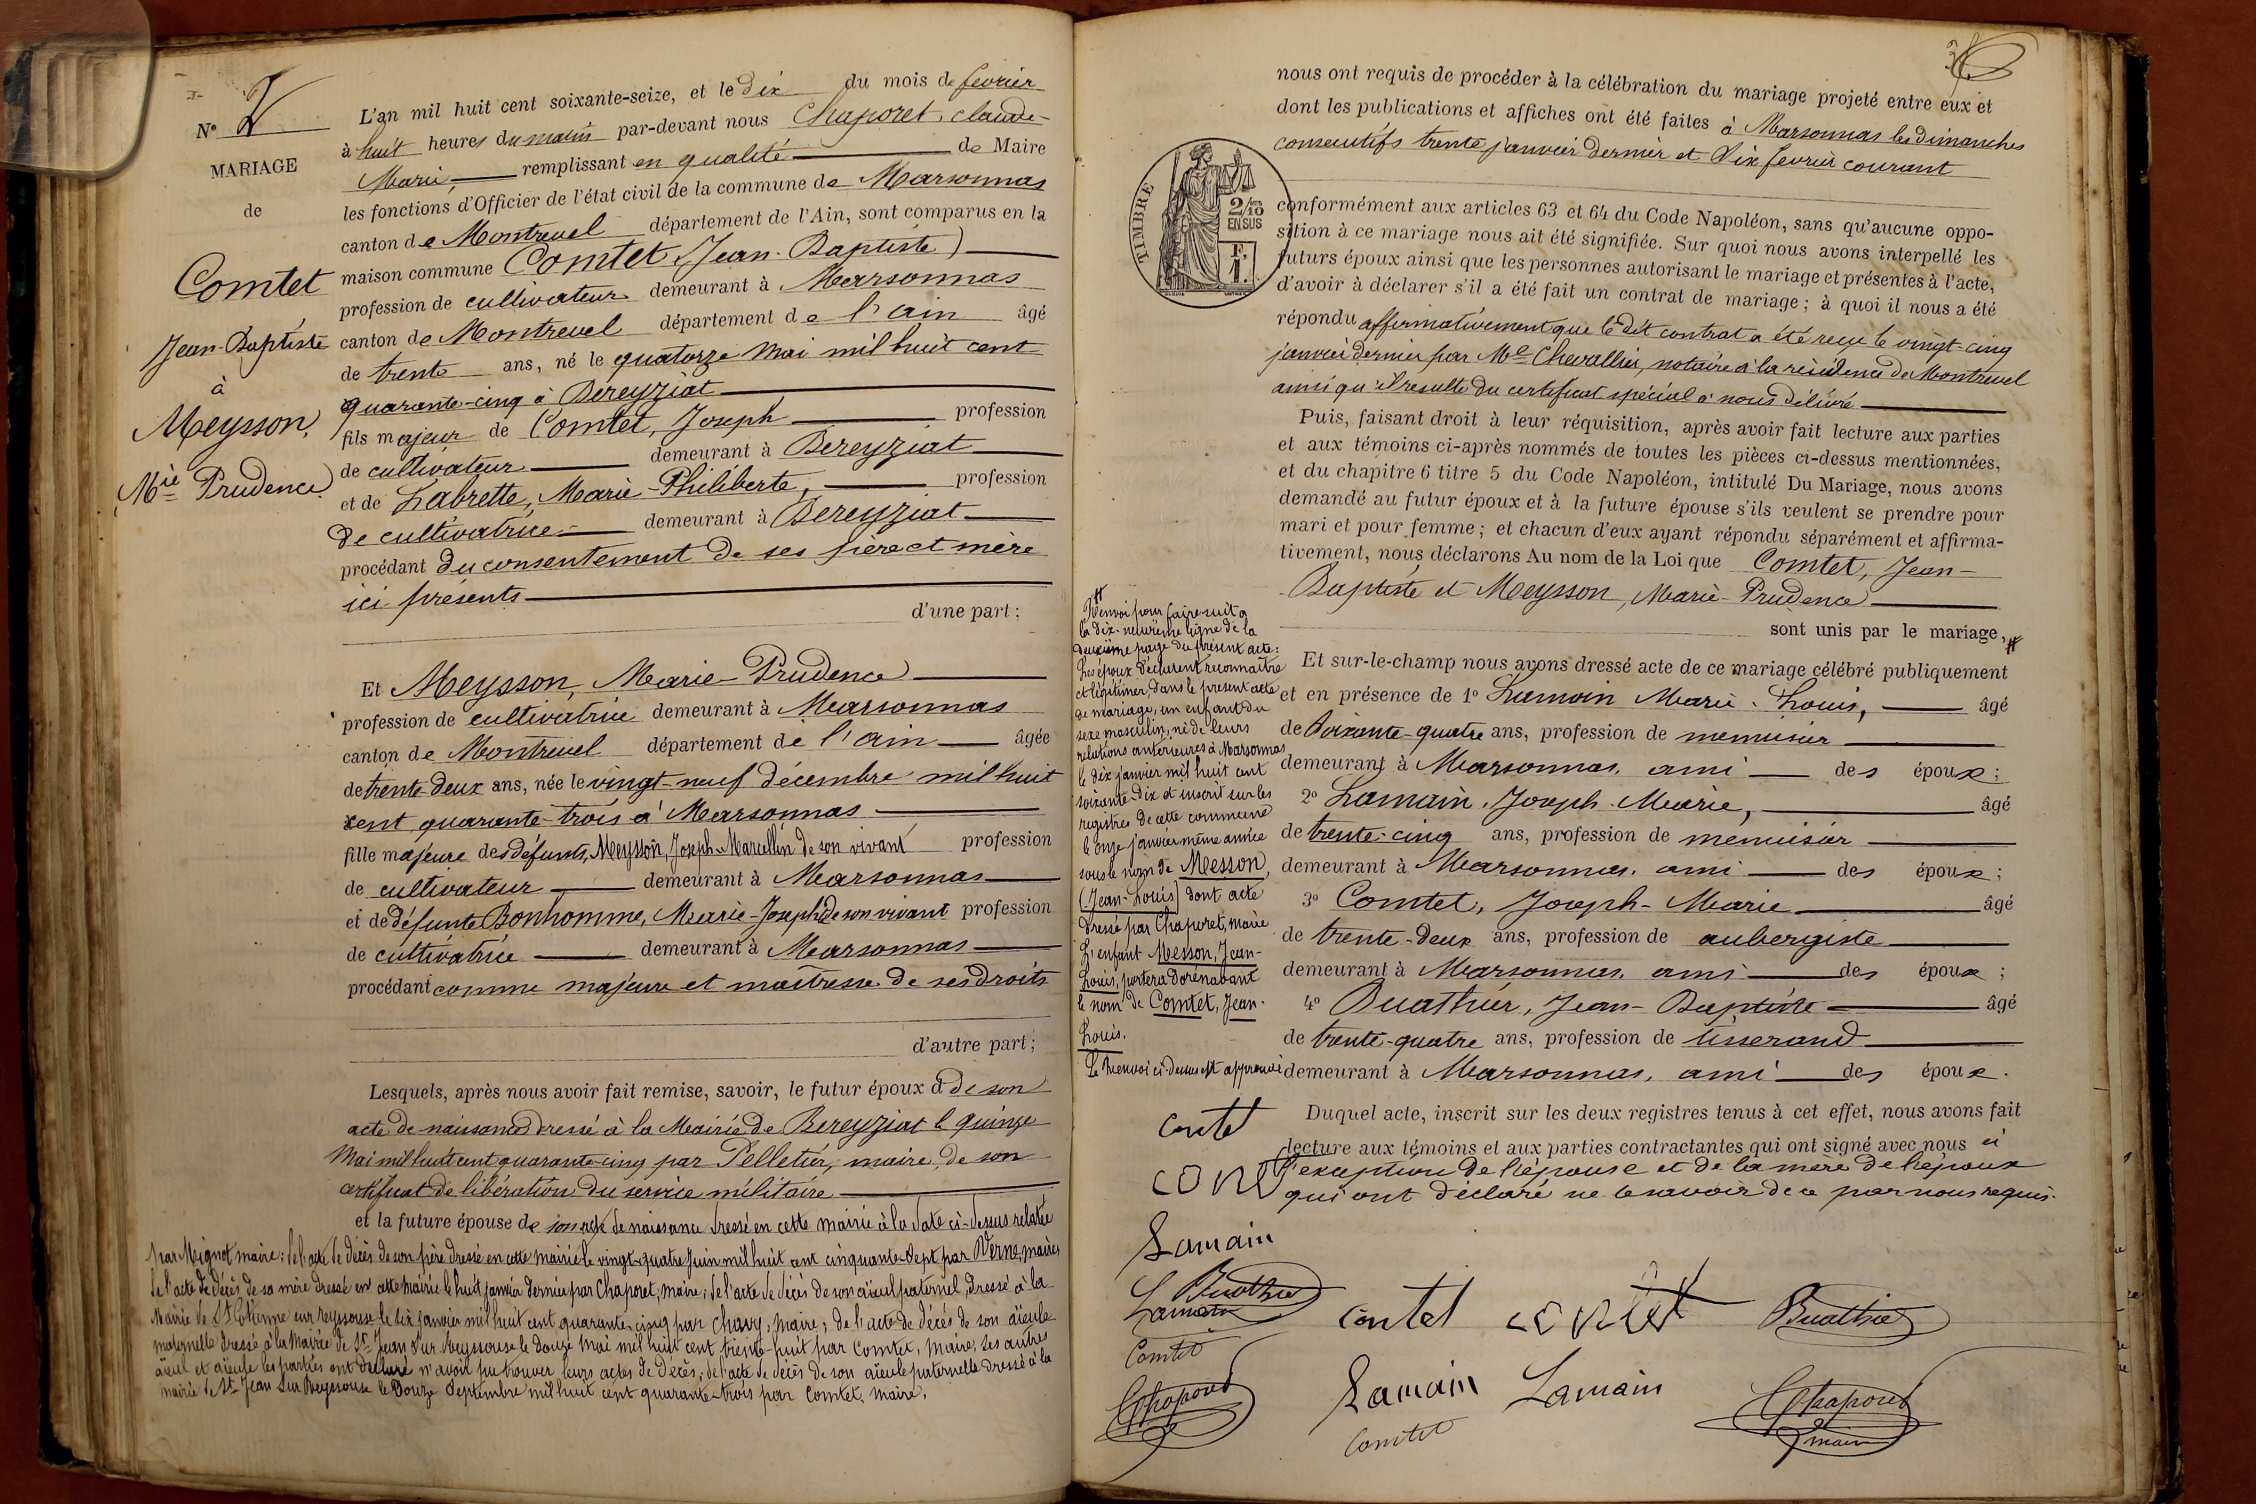 N° 2
MARIAGE
de
Comtet
Jean-Baptiste
à
Meysson,
Mie Prudence
L'an mil huit cent soixante-seize, et le dix du mois de février
à huit heures du matin par-devant nous Chaporet, Claude-
Marie, remplissant en qualité de Maire
les fonctions d'Officier de l'état civil de la commune de Marsonnas
canton de Montrevel département de l'Ain, sont comparus en la
maison commune Comtet (Jean-Baptiste)
profession de cultivateur demeurant à Marsonnas
canton de Montrevel département de l'ain âgé
de trente ans, né le quatorze Mai mil huit cent
quarante-cinq à Béreyziat
fils majeur de Comtet, Joseph profession
de cultivateur demeurant à Béreyziat
et de Labrette, Marie-Philiberte, profession
de cultivatrice demeurant à Béreyziat
procédant du consentement de ses père et mère
ici présents
d'une part;
Et Meysson, Marie-Prudence
profession de cultivatrice demeurant à Marsonnas
canton de Montrevel département de l'ain âgée
de trente-deux ans, née le vingt-neuf décembre mil huit
cent quarante-trois à Marsonnas
fille majeure des défunts, Meysson, Joseph-Marcellin de son vivant profession
de cultivateur demeurant à Marsonnas
et de défunte Bonhomme, Marie-Joseph de son vivant profession
de cultivatrice demeurant à Marsonnas
procédant comme majeure et maîtresse de ses droits
d'autre part;
Lesquels, après nous avoir fait remise, savoir, le futur époux d de son
acte de naissance dressé à la Mairie de Béreyziat le quinze
Mai mil huit cent quarante-cinq par Pelletier, maire, de son
certificat de libération du service militaire
et la future épouse de son acte de naissance dressé en cette mairie à la date ci-dessus relatée
par Mignot maire; de l'acte de décès de son père dressé en cette mairie le vingt-quatre Juin mil huit cent cinquante-sept par Verne, maire;
de l'acte de décès de sa mère dressé en cette mairie le huit janvier dernier par Chaporet, maire; de l'acte de décès de son aïeul paternel, dressé à la
Mairie de St Etienne sur reyssouse le six janvier mil huit cent quarante-cinq par Chavy, maire; de l'acte de décès de son aïeule
maternelle dressé à la Mairie de St Jean sur Reyssouse le douze Mai mil huit cent trente-huit par Comtet, maire; ses autres
aïeul et aïeule les parties ont déclaré n'avoir pu trouver leurs actes de décès; de l'acte de décès de son aïeule paternelle dressé à la
mairie de St Jean sur Reyssouse le Douze Septembre mil huit cent quarante-trois par Comtet, maire.
nous ont requis de procéder à la célébration du mariage projeté entre eux et
dont les publications et affiches ont été faites à Marsonnas les dimanches
consécutifs trente janvier dernier et Six février courant
TIMBRE
2/10
EN SUS
F.
1.
conformément aux articles 63 et 64 du Code Napoléon, sans qu'aucune oppo-
sition à ce mariage nous ait été signifiée. Sur quoi nous avons interpellé les
futurs époux ainsi que les personnes autorisant le mariage et présentes à l'acte,
d'avoir à déclarer s'il a été fait un contrat de mariage; à quoi il nous a été
répondu affirmativement que le dit contrat a été reçu le vingt-cinq
janvier dernier par Me Chevallier, notaire à la résidence de Montrevel
ainsi qu'il résulte du certificat spécial à nous délivré
Puis, faisant droit à leur réquisition, après avoir fait lecture aux parties
et aux témoins ci-après nommés de toutes les pièces ci-dessus mentionnées,
et du chapitre 6 titre 5 du Code Napoléon, intitulé Du Mariage, nous avons
demandé au futur époux et à la future épouse s'ils veulent se prendre pour
mari et pour femme; et chacun d'eux ayant répondu séparément et affirma-
tivement, nous déclarons Au nom de la Loi que Comtet, Jean-
Baptiste et Meysson, Marie-Prudence
sont unis par le mariage, #
Et sur-le-champ nous avons dressé acte de ce mariage célébré publiquement
et en présence de 1° Lamain Marie-Louis, âgé
de Soixante-quatre ans, profession de menuisier
demeurant à Marsonnas, ami des époux;
2° Lamain, Joseph-Marie, âgé
de trente-cinq ans, profession de menuisier
demeurant à Marsonnas, ami des époux;
3° Comtet, Joseph-Marie âgé
de trente-deux ans, profession de aubergiste
demeurant à Marsonnas, ami des époux;
4° Buathier, Jean-Baptiste âgé
de trente-quatre ans, profession de tisserand
demeurant à Marsonnas, ami des époux.
Duquel acte, inscrit sur les deux registres tenus à cet effet, nous avons fait
lecture aux témoins et aux parties contractantes qui ont signé avec nous à
l'exception de l'épouse et de la mère de l'époux
qui ont déclaré ne le savoir de ce par nous requis.
#
Renvoi pour faire suite à
la dix-neuvième ligne de la
deuxième page du présent acte:
Les époux déclarent reconnaître
et légitimer, dans le présent acte
de mariage, un enfant du
sexe masculin, né de leurs
relations antérieures à Marsonnas
le dix janvier mil huit cent
soixante-dix et inscrit sur les
registres de cette commune
le onze janvier même année
sous le nom de Messon,
(Jean-Louis) dont acte
dressé par Chaporet, maire
L'enfant Messon, Jean-
Louis, portera dorénavant
le nom de Comtet, Jean-
Louis.
Le Renvoi ci-dessus est approuvé
Contet
Contet
Lamain
Buathier
Lamain
Comtet
Chaporet
Contet contet Buathier
Lamain Lamain
Comtet
Chaporet
maire